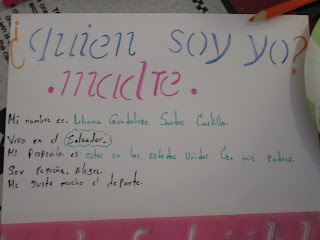 ¿Quien soy yo?
.madre.
Mi nombre es. Liliana Guadalupe Santos Castillo.
Vivo en el Salvador.
Mi proposito es estar en los estados Unidos Con mis padres.
Soy Pequeña, Alegre.
Me gusta mucho el deporte.